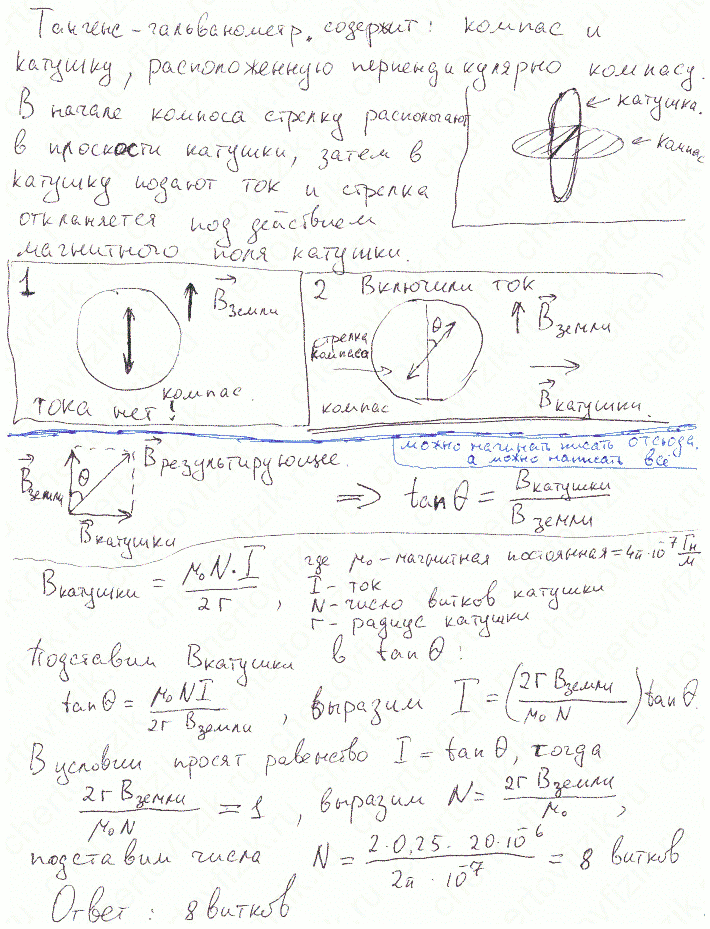 Тангенс-гальванометр содержит: компас и
катушку, расположенную перпендикулярно компасу.
В начале компаса стрелку распологают
в плоскости катушки, затем в
катушку подают ток и стрелка
откланяется под действием
магнитного поля катушки.
← катушка.
← компас
1
B⃗ земли
компас.
тока нет!
2 Включили ток
θ
стрелка
компаса
компас
B⃗ земли
B⃗ катушки.
можно начинать писать отсюда.
а можно написать всё
B⃗ земли
θ
B⃗ результирующее.
B⃗ катушки
=> tanθ = Bкатушки / Bземли
Bкатушки = μ₀N·I / 2r, где μ₀ - магнитная постоянная = 4π·10⁻⁷ Гн/м
I - ток
N - число витков катушки
r - радиус катушки
Подставим Bкатушки в tanθ:
tanθ = μ₀NI / 2r Bземли, выразим I = (2r Bземли / μ₀N) tanθ.
В условии просят равенство I = tanθ, тогда
2r Bземли / μ₀N = 1, выразим N = 2r Bземли / μ₀,
подставим числа N = 2·0,25·20·10⁻⁶ / 2π·10⁻⁷ = 8 витков
Ответ: 8 витков